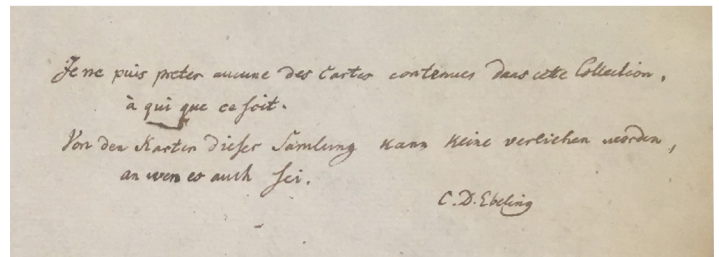 Je ne puis preter aucune des Cartes contenues dans cette Collection,
à qui que ce soit.
Von den Karten dieser Samlung kann keine verliehen werden,
an wen es auch sei.
C. D. Ebeling